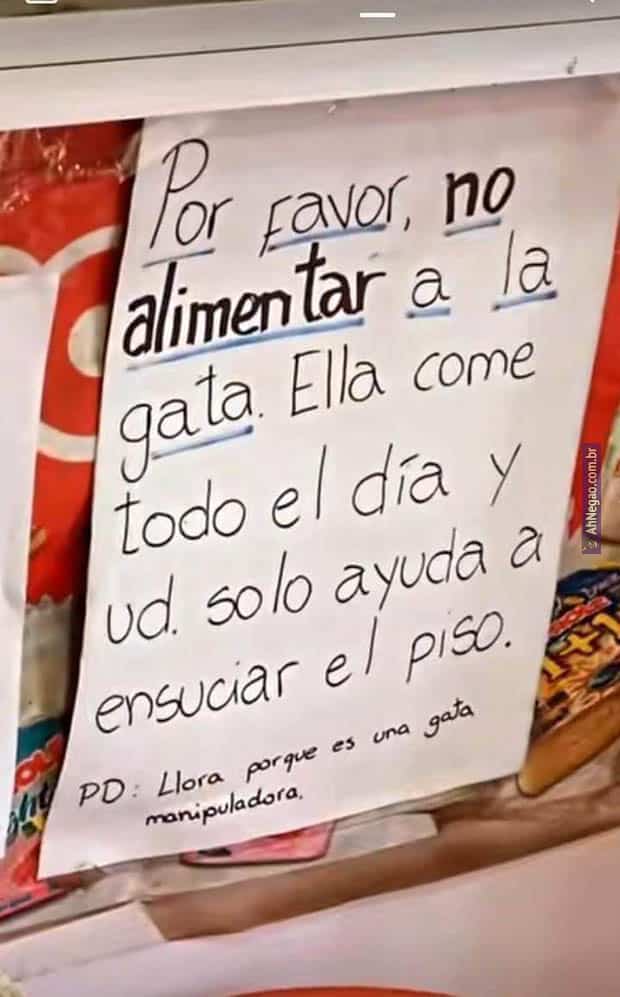 Por favor, no
alimentar a la
gata. Ella come
todo el día y
ud. solo ayuda a
ensuciar el piso.
PD: Llora porque es una gata
manipuladora.
AhNegao.com.br
1+1